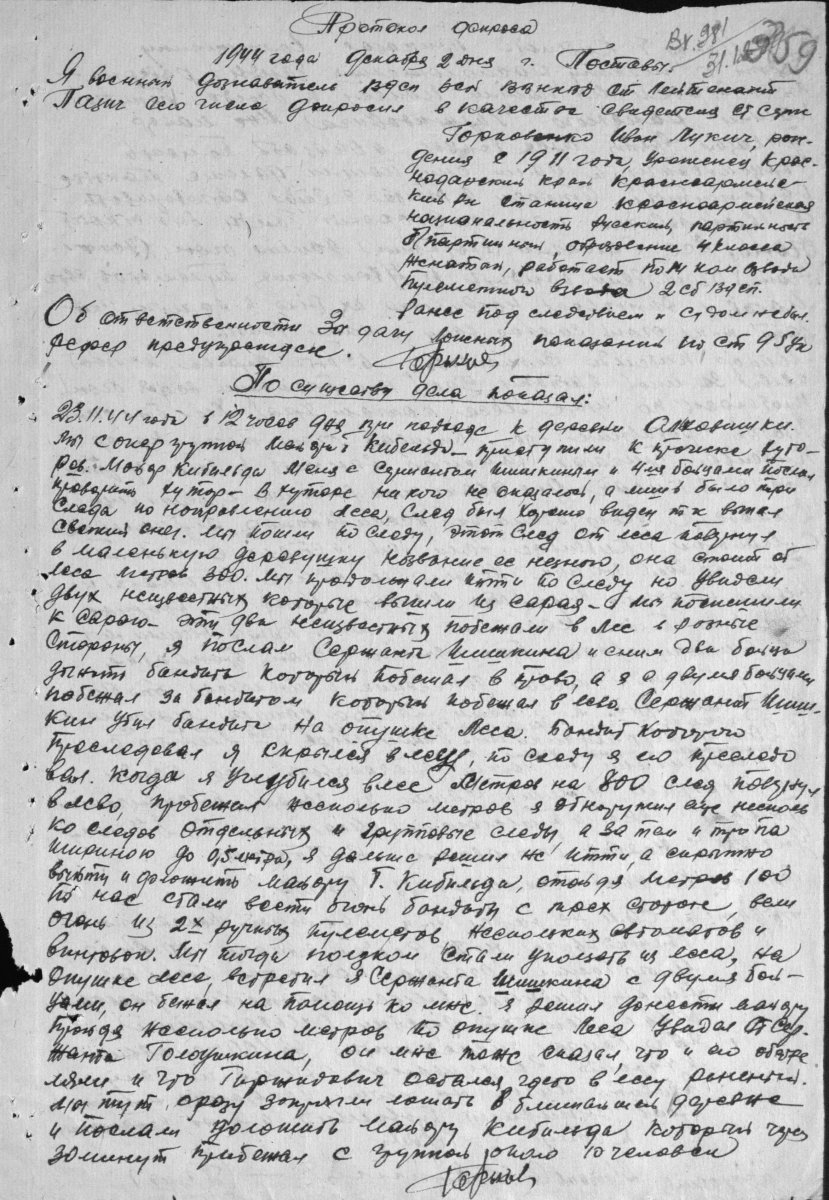 Протокол допроса
Вх. 381
31.12
359
1944 года декабря 2 дня г. Поставы.
Я военный дознаватель ВДСП ст лейтенант
сего числа допросил в качестве свидетеля ст сержанта
Горковенко Иван Лукич, рож-
дения с 1911 года, уроженец Крас-
нодарский край Красноармейс-
кий р-н станица Красноармейская
национальность русский, партийность
б/партийный, образование 4 класса
женатый, работает пом ком взвода
пулеметного взвода 2 сб
ранее под следствием и судом не был.
Об ответственности за дачу ложных показаний по ст 95 УК
РСФСР предупрежден.
По существу дела показал:
23.11.44 года в 12 часов дня при подходе к деревни
мы с опергруппой майора Кибильда приступили к прочиске хуто-
ров. Майор Кибильда меня с сержантом Шишкиным и 4-мя бойцами послал
проверить хутор. В хуторе никого не оказалось, а лишь было три
следа по направлению леса, след был хорошо виден т к выпал
свежий снег. Мы пошли по следу, этот след от леса повернул
в маленькую деревушку название ее незнаю, она стоит от
леса метров 300. Мы продолжали итти по следу но увидели
двух неизвестных которые вышли из сарая. Мы поспешили
к сараю эти два неизвестных побежали в лес в разные
стороны, я послал сержанта Шишкина и с ним два бойца
догнать бандита который побежал в право, а я с двумя бойцами
побежал за бандитом который побежал в лево. Сержант Шиш-
кин убил бандита на опушке леса. Бандит которого
преследовал я скрылся в лесу, по следу я его преследо
вал. Когда я углубился в лес метров на 800 след повернул
в лево, пробежал несколько метров я обнаружил еще несколь
ко следов отдельных и групповые следы, а за тем и тропа
шириною до 0,5 метра, я дальше решил не итти, а скрытно
выйти и доложить майору т. Кибильда, отойдя метров 100
по нас стали вести огонь бандиты с трех сторон, вели
огонь из 2х ручных пулеметов нескольких автоматов и
винтовок. Мы тогда ползком стали уползать из леса, на
опушке леса, встретил я сержанта Шишкина с двумя бой-
цами, он бежал на помощь ко мне. Я решил донести майору
пройдя несколько метров по опушке леса увидал ст сер-
жанта Голоушкина, он мне тоже сказал, что и его обстре
ляли и что остался где-то в лесу раненый.
Мы тут сразу запрягли лошадь в ближайшей деревне
и послали доложить майору Кибильда который через
30 минут прибежал с группой около 10 человек